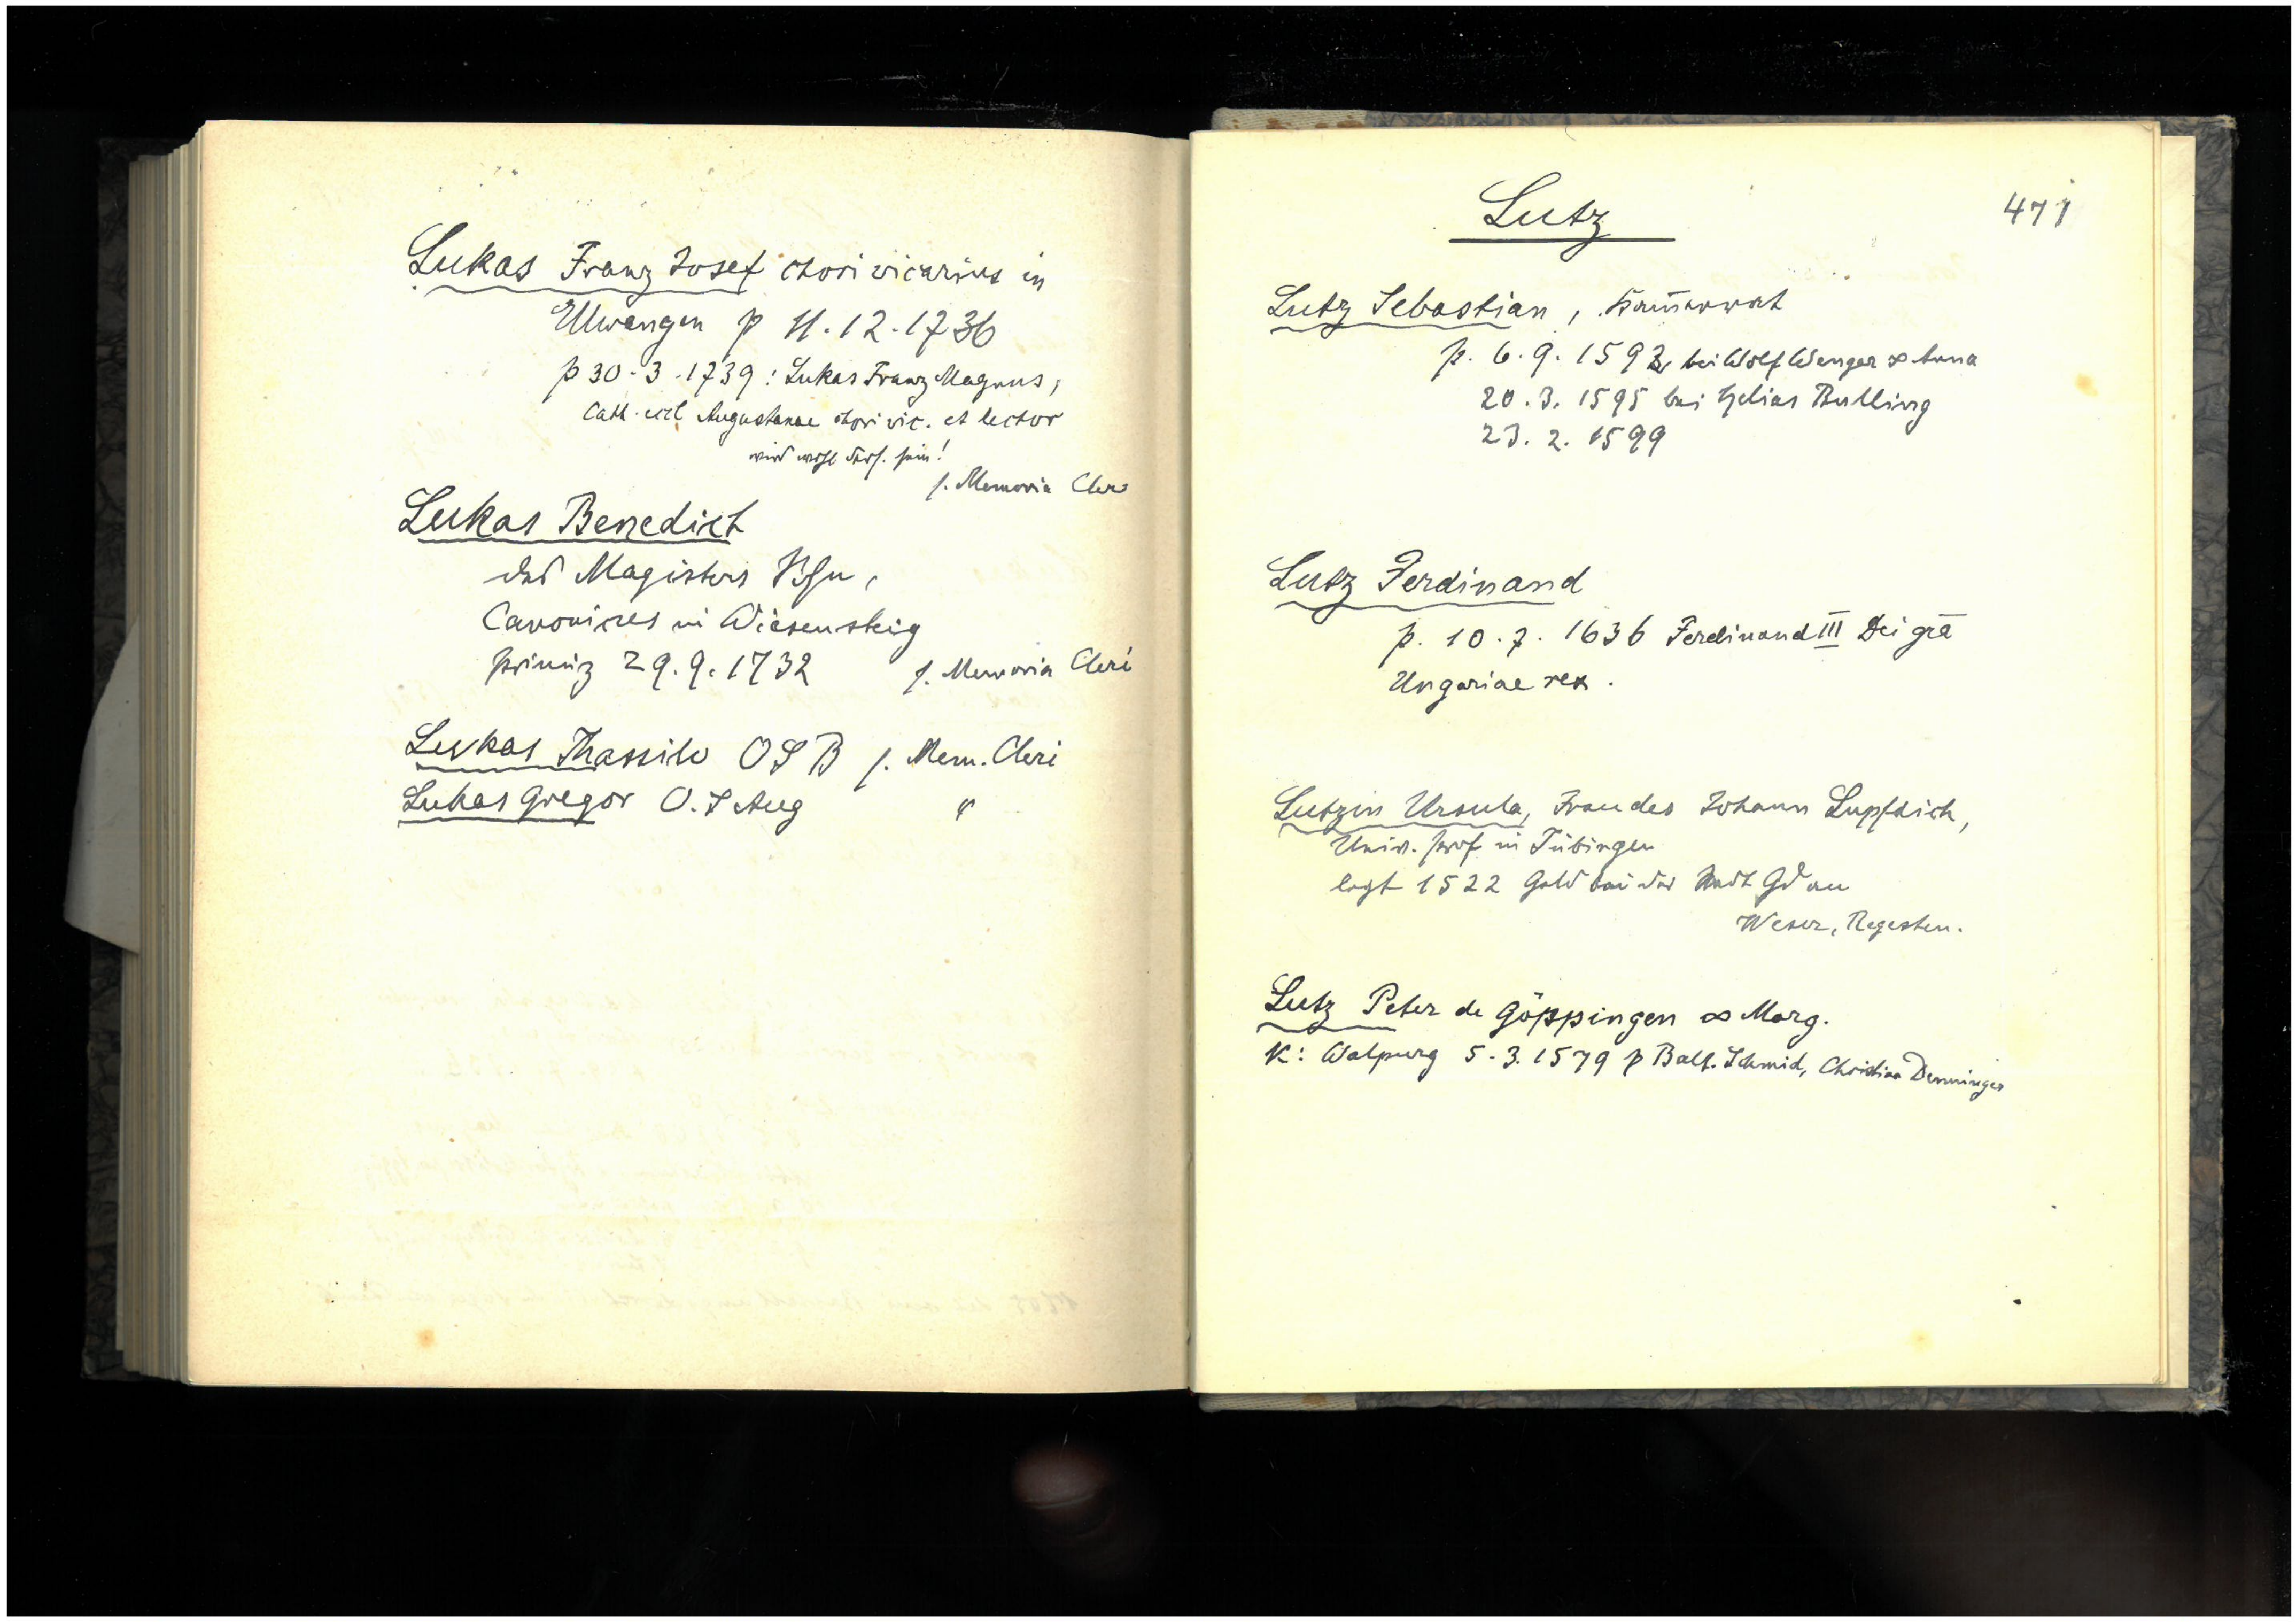 Lukas Franz Josef chori vicarius in
Ellwangen p 11.12.1736
p 30.3.1739: Lukas Franz Magnus,
Cath. eccl. Augustanae chori vic. et lector
wird wohl ders. sein!
s. Memoria Cleri
Lukas Benedict
des Magisters Sohn,
Canonicus in Wiesensteig
primiz 29.9.1732 s. Memoria Cleri
Lukas Thassilo OSB s. Mem. Cleri
Lukas Gregor O.S Aug "
Lutz 471
Lutz Sebastian,
p. 6.9.1592 bei Wolf Wenger ∞ Anna
20.3.1595 bei Helias Bulling
23.2.1599
Lutz Ferdinand
p. 10.7.1636 Ferdinand III Dei grā
Ungariae rex.
Lutzin Ursula, Frau des Johann Lupfdich,
Univ. prof. in Tübingen
legt 1522 Geld bei der Stadt Gd an
Weser, Regesten.
Lutz Peter de Göppingen ∞ Marg.
K: Walpurg 5.3.1579 p Balt. Schmid, Christina Denninger